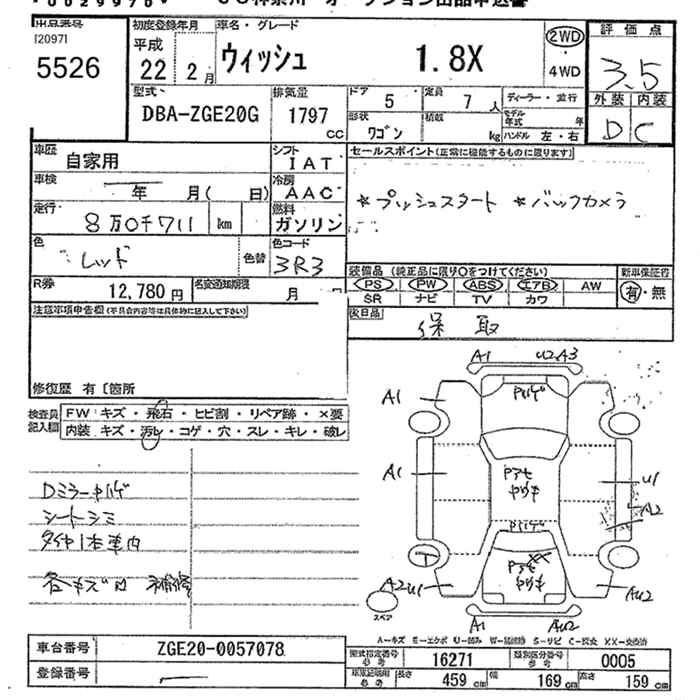 出品番号
(20971
5526
初度登録年月
平成
22年 2月
車名・グレード
ウィッシュ 1.8X
2WD
・
4WD
評価点
3.5
外装 内装
D C
型式
DBA-ZGE20G
排気量
1797
CC
ドア 5
定員 7人
形状 ワゴン
積載 kg
ディーラー・並行
モデル年式 年
ハンドル 左・右
車歴
自家用
シフト
IAT
車検
年 月( 日)
冷房
AAC
走行
8万0千711 km
燃料
ガソリン
色
レッド
色替
色コード
3R3
R券
12,780円
名変通知期限
月
セールスポイント(正常に機能するものに限ります)
*プッシュスタート *バックカメラ
装備品(純正品に限り○をつけてください)
新車保証書
PS PW ABS エアB AW
SR ナビ TV カワ
有・無
後日品
保 取
注意事項申告欄(不具合内容等は具体的に記入して下さい)
修復歴 有〔箇所
検査員
記入欄
FW キズ・飛石・ヒビ割・リペア跡・×要
内装 キズ・汚レ・コゲ・穴・スレ・キレ・破レ
Dミラーキハゲ
シートシミ
タイヤ1本車内
各キズ凹 補修
A1 U2A3
A1
A1
U1
A2
A2U1
AU2
A1 AU2
T
スペア
A-キズ E-エクボ U-凹み W-補修跡 S-サビ C-腐食 XX-交換済
車台番号
ZGE20-0057078
登録番号
型式指定番号
参考
16271
類別区分番号
参考
0005
車車記載用
参考
長さ 459cm
幅 169cm
高さ 159cm